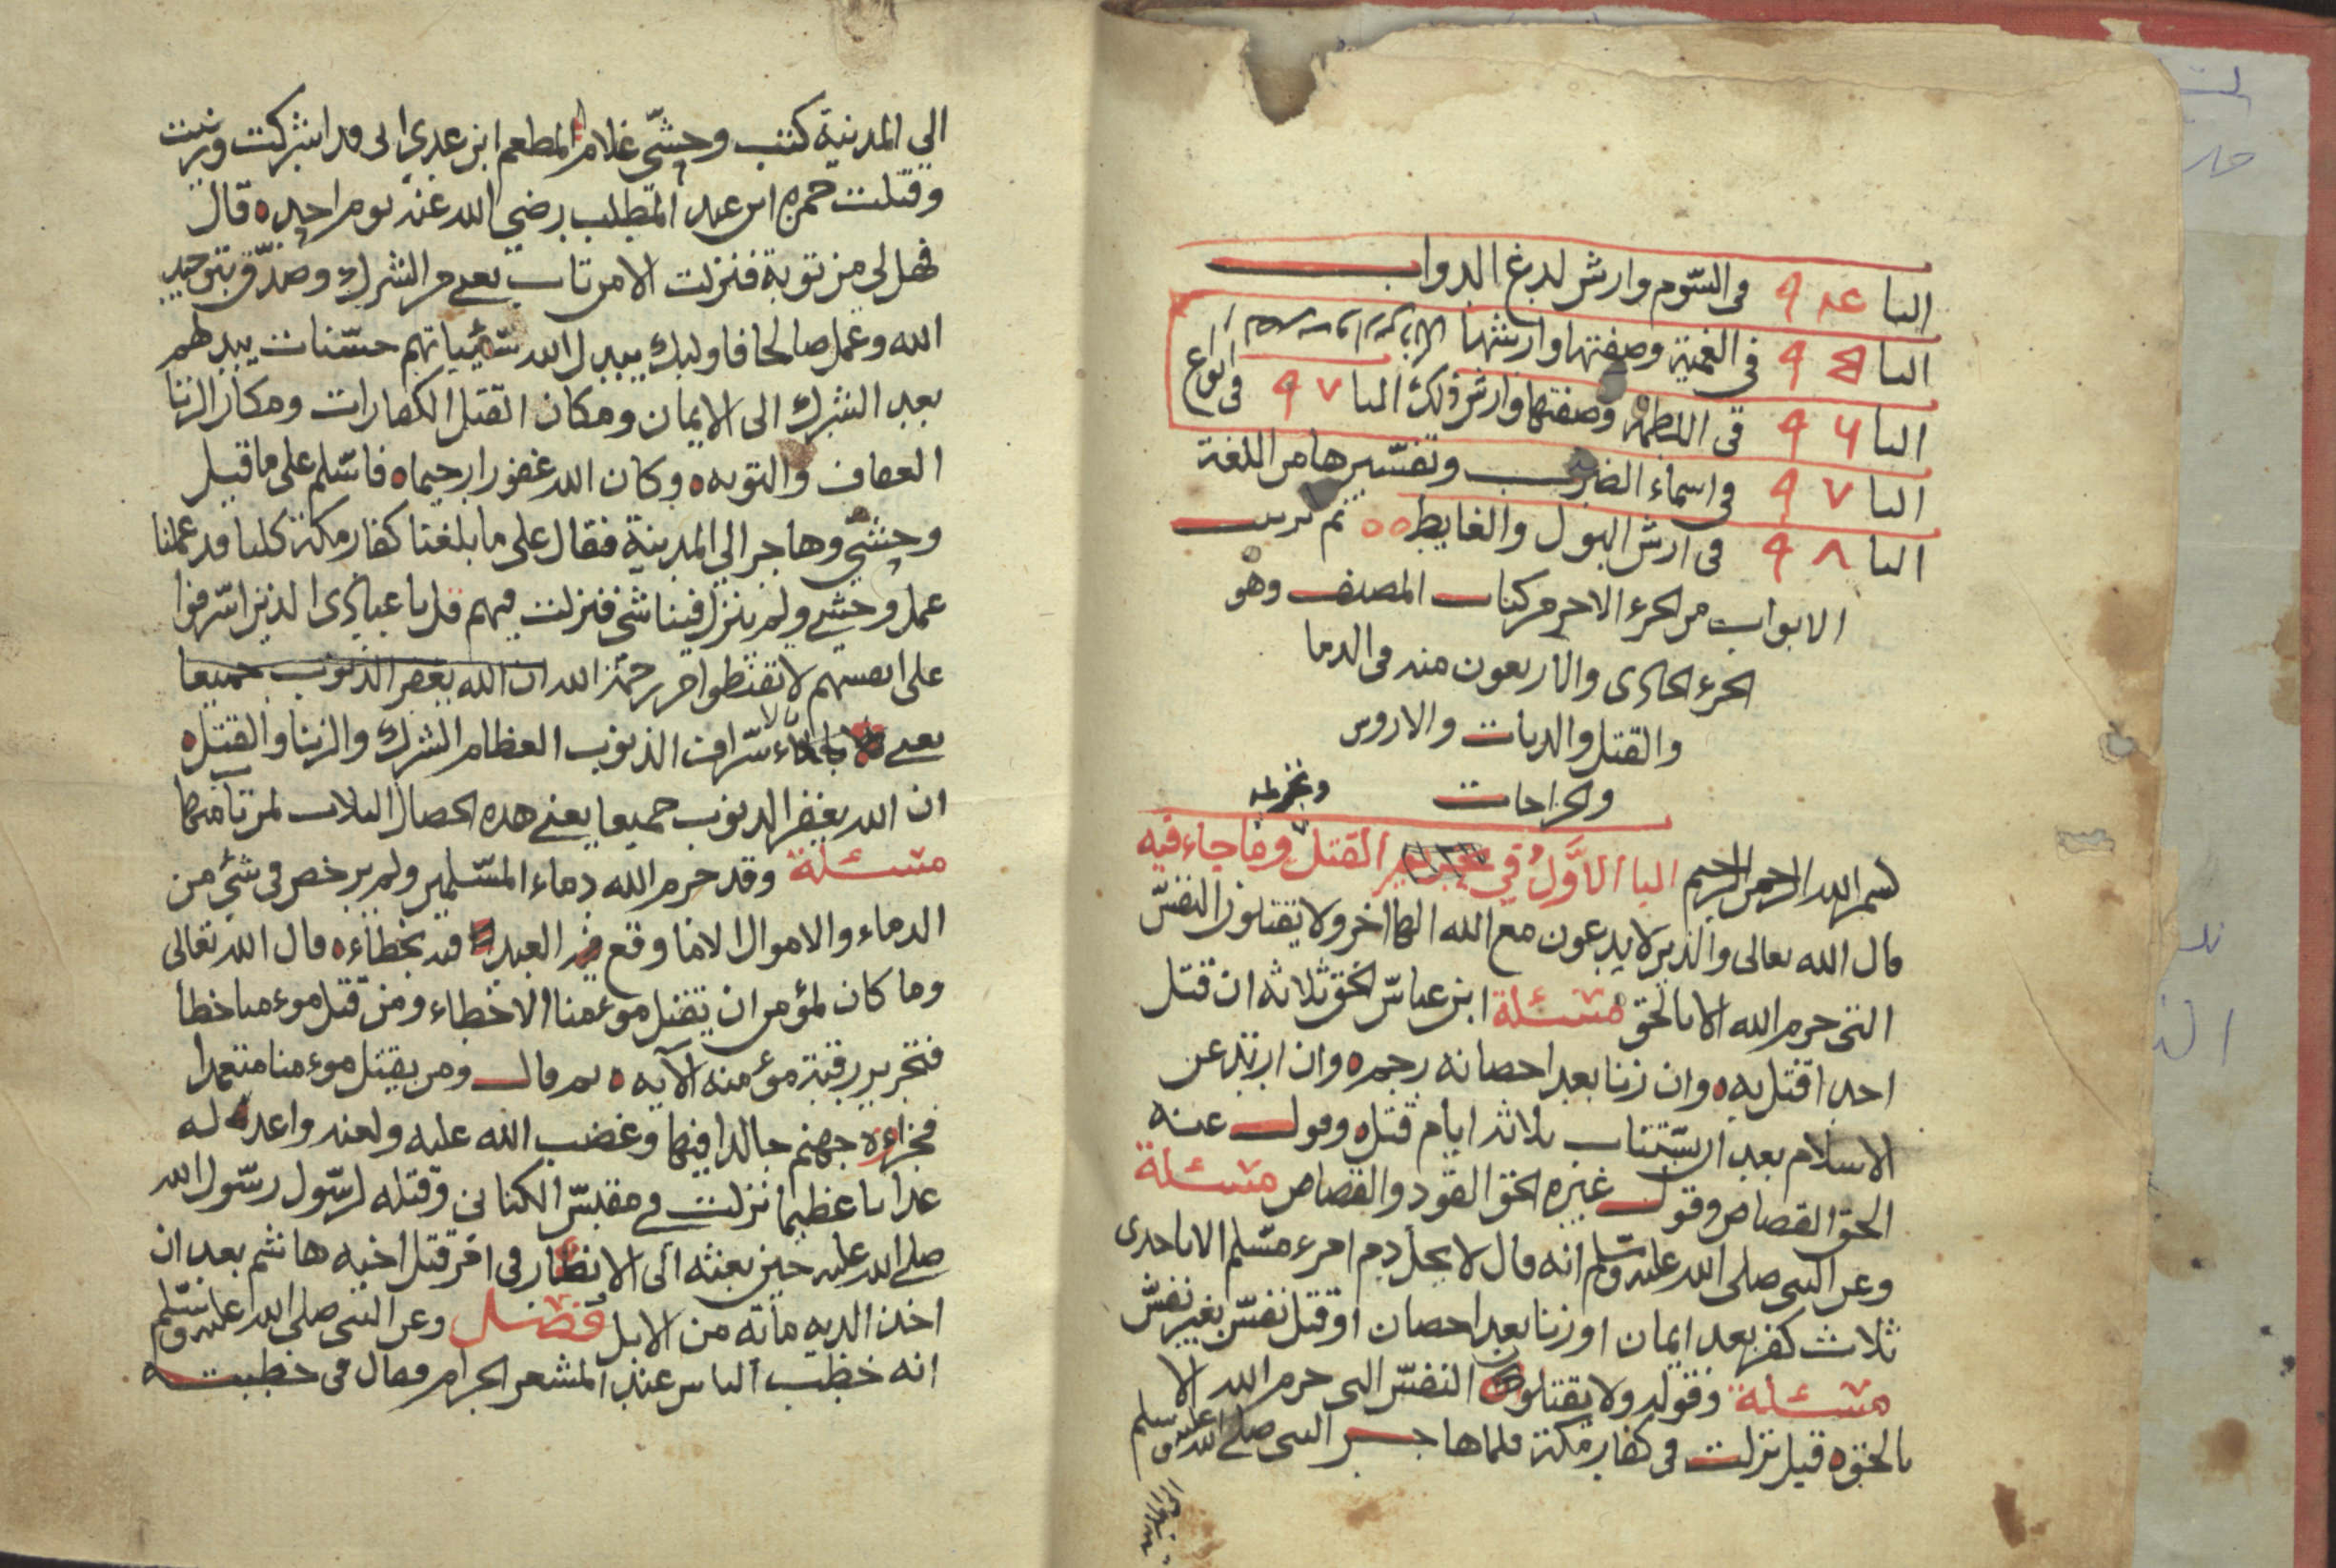 البا ٩٤ في السموم وارش لدغ الدواب
البا ٩٥ في العمية وصفتها وارشها
البا ٩٦ في اللطمة وصفتها وارش ذلك البا ٩٧ في انواع
البا ٩٧ في اسماء الضرب وتفسيرها من اللغة
البا ٩٨ في ارش البول والغايط ٥٥ تم ترتيب
الابواب من الجزء الاخر من كتاب المصنف وهو
الجزء الحادى والاربعون منه في الدما
والقتل والديات والاروش
والجراحات
وتحريمه
بسم الله الرحمن الرحيم البا الاول في القتل وما جاء فيه
قال الله تعالى والذين لا يدعون مع الله الها اخر ولا يقتلون النفس
التي حرم الله الا بالحق مسئلة ابن عباس الحق ثلاثه ان قتل
احدا قتل به ٥ وان زنا بعد احصانه رجم ٥ وان ارتد عن
الاسلام بعد ان يستتاب ثلاثه ايام قتل ٥ وقول عنه
الحق القصاص وقول غيره الحق القود والقصاص مسئلة
وعن النبي صلى الله عليه وسلم انه قال لا يحل دم امرء مسلم الا باحدى
ثلاث كفر بعد ايمان او زنا بعد احصان او قتل نفس بغير نفس
مسئلة وقوله ولا يقتلون النفس التي حرم الله الا
بالحق ٥ قيل نزلت في كفار مكة فلما هاجر النبي صلى الله عليه وسلم
الي المدنية كتب وحشي غلام المطعم ابن عدي اني قد اشركت وزنيت
وقتلت حمزه ابن عبد المطلب رضي الله عنه يوم احد ٥ قال
فهل لي من توبة فنزلت الا من تاب يعني من الشرك وصدق بتوحيد
الله وعمل صالحا فاوليك يبدل الله سئياتهم حسنات يبدلهم
بعد الشرك الى الايمان ومكان القتل الكفارات ومكان الزنا
العفاف والتوبه ٥ وكان الله غفورا رحيما ٥ فاسلم على ما قيل
وحشي وهاجر الي المدينة فقال على ما بلغنا كفار مكة كلنا قد عملنا
عمل وحشي ولم ينزل فينا شي فنزلت فيهم قل يا عبادى الذين اسرفوا
على انفسهم لا تقنطوا من رحمة الله ان الله يغفر الذنوب جميعا
يعني بالاسراف الذنوب العظام الشرك والزنا والقتل ٥
ان الله يغفر الذنوب جميعا يعني هذه الخصال الثلاث لمن تاب منها
مسئلة وقد حرم الله دماء المسلمين ولم يرخص في شي من
الدماء والاموال الا ما وقع من العبد فيه بخطاء ٥ قال الله تعالى
وما كان لمؤمن ان يقتل موءمنا الا خطاء ومن قتل موءمنا خطأ
فتحرير رقبة مؤمنه الآيه ٥ ثم قال ومن يقتل موءمنا متعمدا
فجزاءه جهنم خالدا فيها وغضب الله عليه ولعنه واعد له
عذابا عظيما نزلت في مقبس الكناني وقتله لرسول رسول الله
صلى الله عليه حين بعثه الى الانصار في امر قتل اخيه هاشم بعد ان
اخذ الديه مائه من الابل فصل وعن النبي صلى الله عليه وسلم
انه خطب الناس عند المشعر الحرام وقال في خطبته